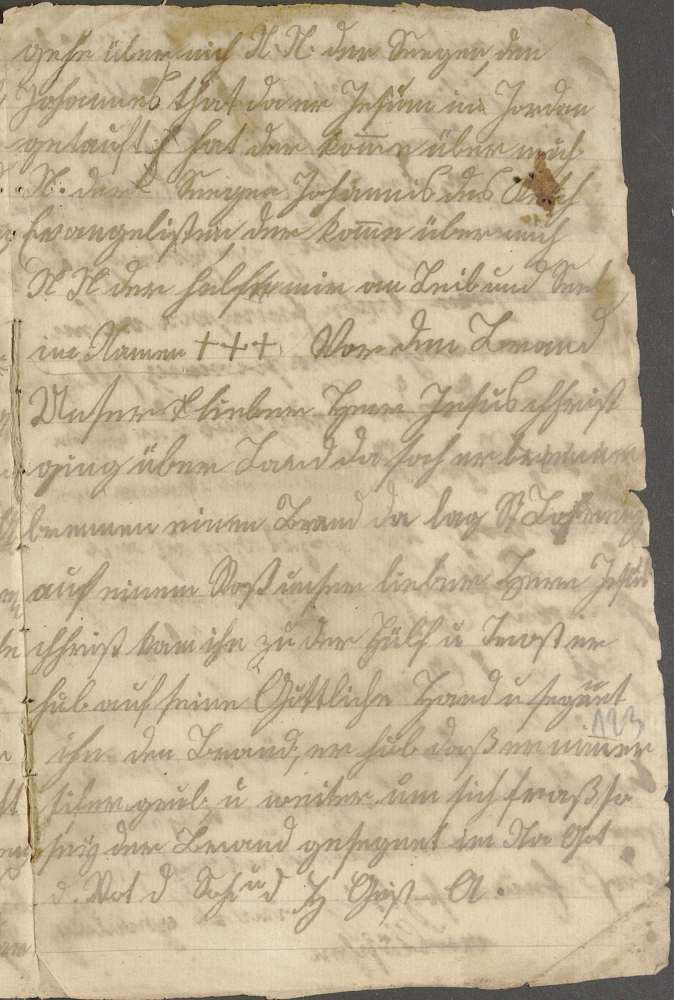 gehe über mich N. N. der Seegen, den
Johannes that da er Jesum im Jordan
getauft hat der komme über mich
N. der Seegen Johannis des
Evangelisten, der komme über mich
N N der helf mir an Leib und Seel
im Namen +++. Vor den Brand
Unser lieber Herr Jesus Chhrist
ging über Land da sach er brennen
brennen einen Brand da lag St Lorenz
auf einem Rost unser lieber Herr Jesus
Chhrist kam ihn zu der Hülf u Trost er
hub auf seine Göttliche Hand u segnet
ihn den Brand, er hub daß er nimer
tifer grub, u weiter um sich fraß so
sey der Brand gesegnet im Na Got
d. Vat d Soh u d H Geist A.
123